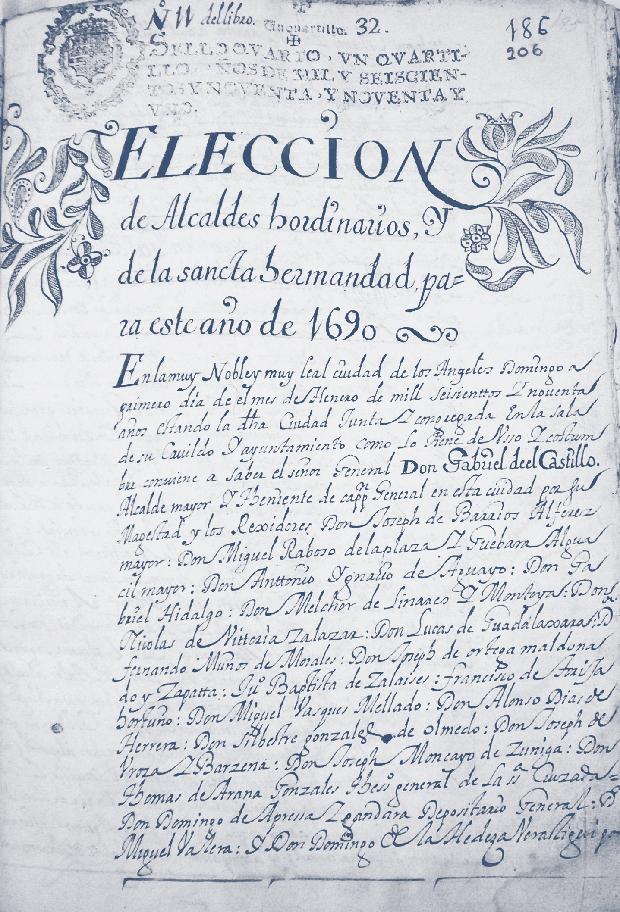 N 11 del libro. Un quartillo. 32. 186
206
SELLO QVARTO, VN QVARTI-
LLO, AÑOS DE MIL Y SEISCIEN-
TOS Y NOVENTA, Y NOVENTA Y
VNO.
ELECCION
de Alcaldes hordinarios, Y
de la sancta hermandad, pa=
ra este año de 1690
En la muy Noble y muy leal ciudad de los Angeles Domingo a
primero dia de el mes de Henero de mill seisienttos Y nouenta
años estando la dha Ciudad Junta Y conuregada En la sala
de su Cauildo Y ayuntamiento como lo tiene de Vso Y costum
bre conuiene a saber el señor General Don Gabriel de el Castillo.
Alcalde mayor Y theniente de capn General en esta ciudad por su
Magestad y los Rexidores Don Joseph de Barrios Alferez
mayor: Don Miguel Raboso de la plaza Y Guebara Algua
cil mayor: Don Anttonio Ygnacio de Aguayo: Don Ga
briel Hidalgo: Don Melchor de Linares Y Montoya: Don
Nicolas de Vittoria Zalazar: Don Lucas de Guadalaxara: D
fernando Muños de Morales: Don Joseph de ortega maldona
do y Zapatta: Ju° Baptista de Zalaises: francisco de
hortuño: Don Miguel Vasques Mellado: Don Alonso Dias de
Herrera: Don Silbestre gonzales de olmedo: Don Joseph de
Vroza Y Barzena: Don Joseph Moncayo de Zuniga: Don
Thomas de Arana Gonzales thesso general de la sta Cruzada=
Don Domingo de Apressa Y gandara Depositario General: D
Miguel Valera: Y Don Domingo de la Hedeza Verastigui